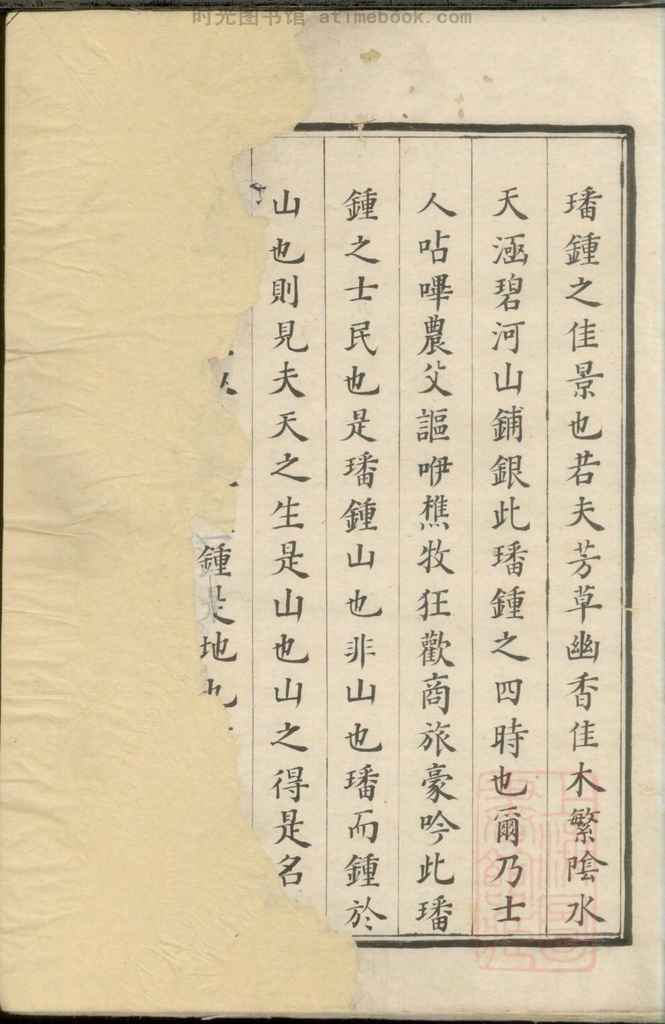 时光图书馆 atimebook.com
璠鍾之佳景也若夫芳草幽香佳木繁陰水
天涵碧河山鋪銀此璠鍾之四時也爾乃士
人呫嗶農父謳咿樵牧狂歡商旅豪吟此璠
鍾之士民也是璠鍾山也非山也璠而鍾於
山也則見夫天之生是山也山之得是名
鍾是地也